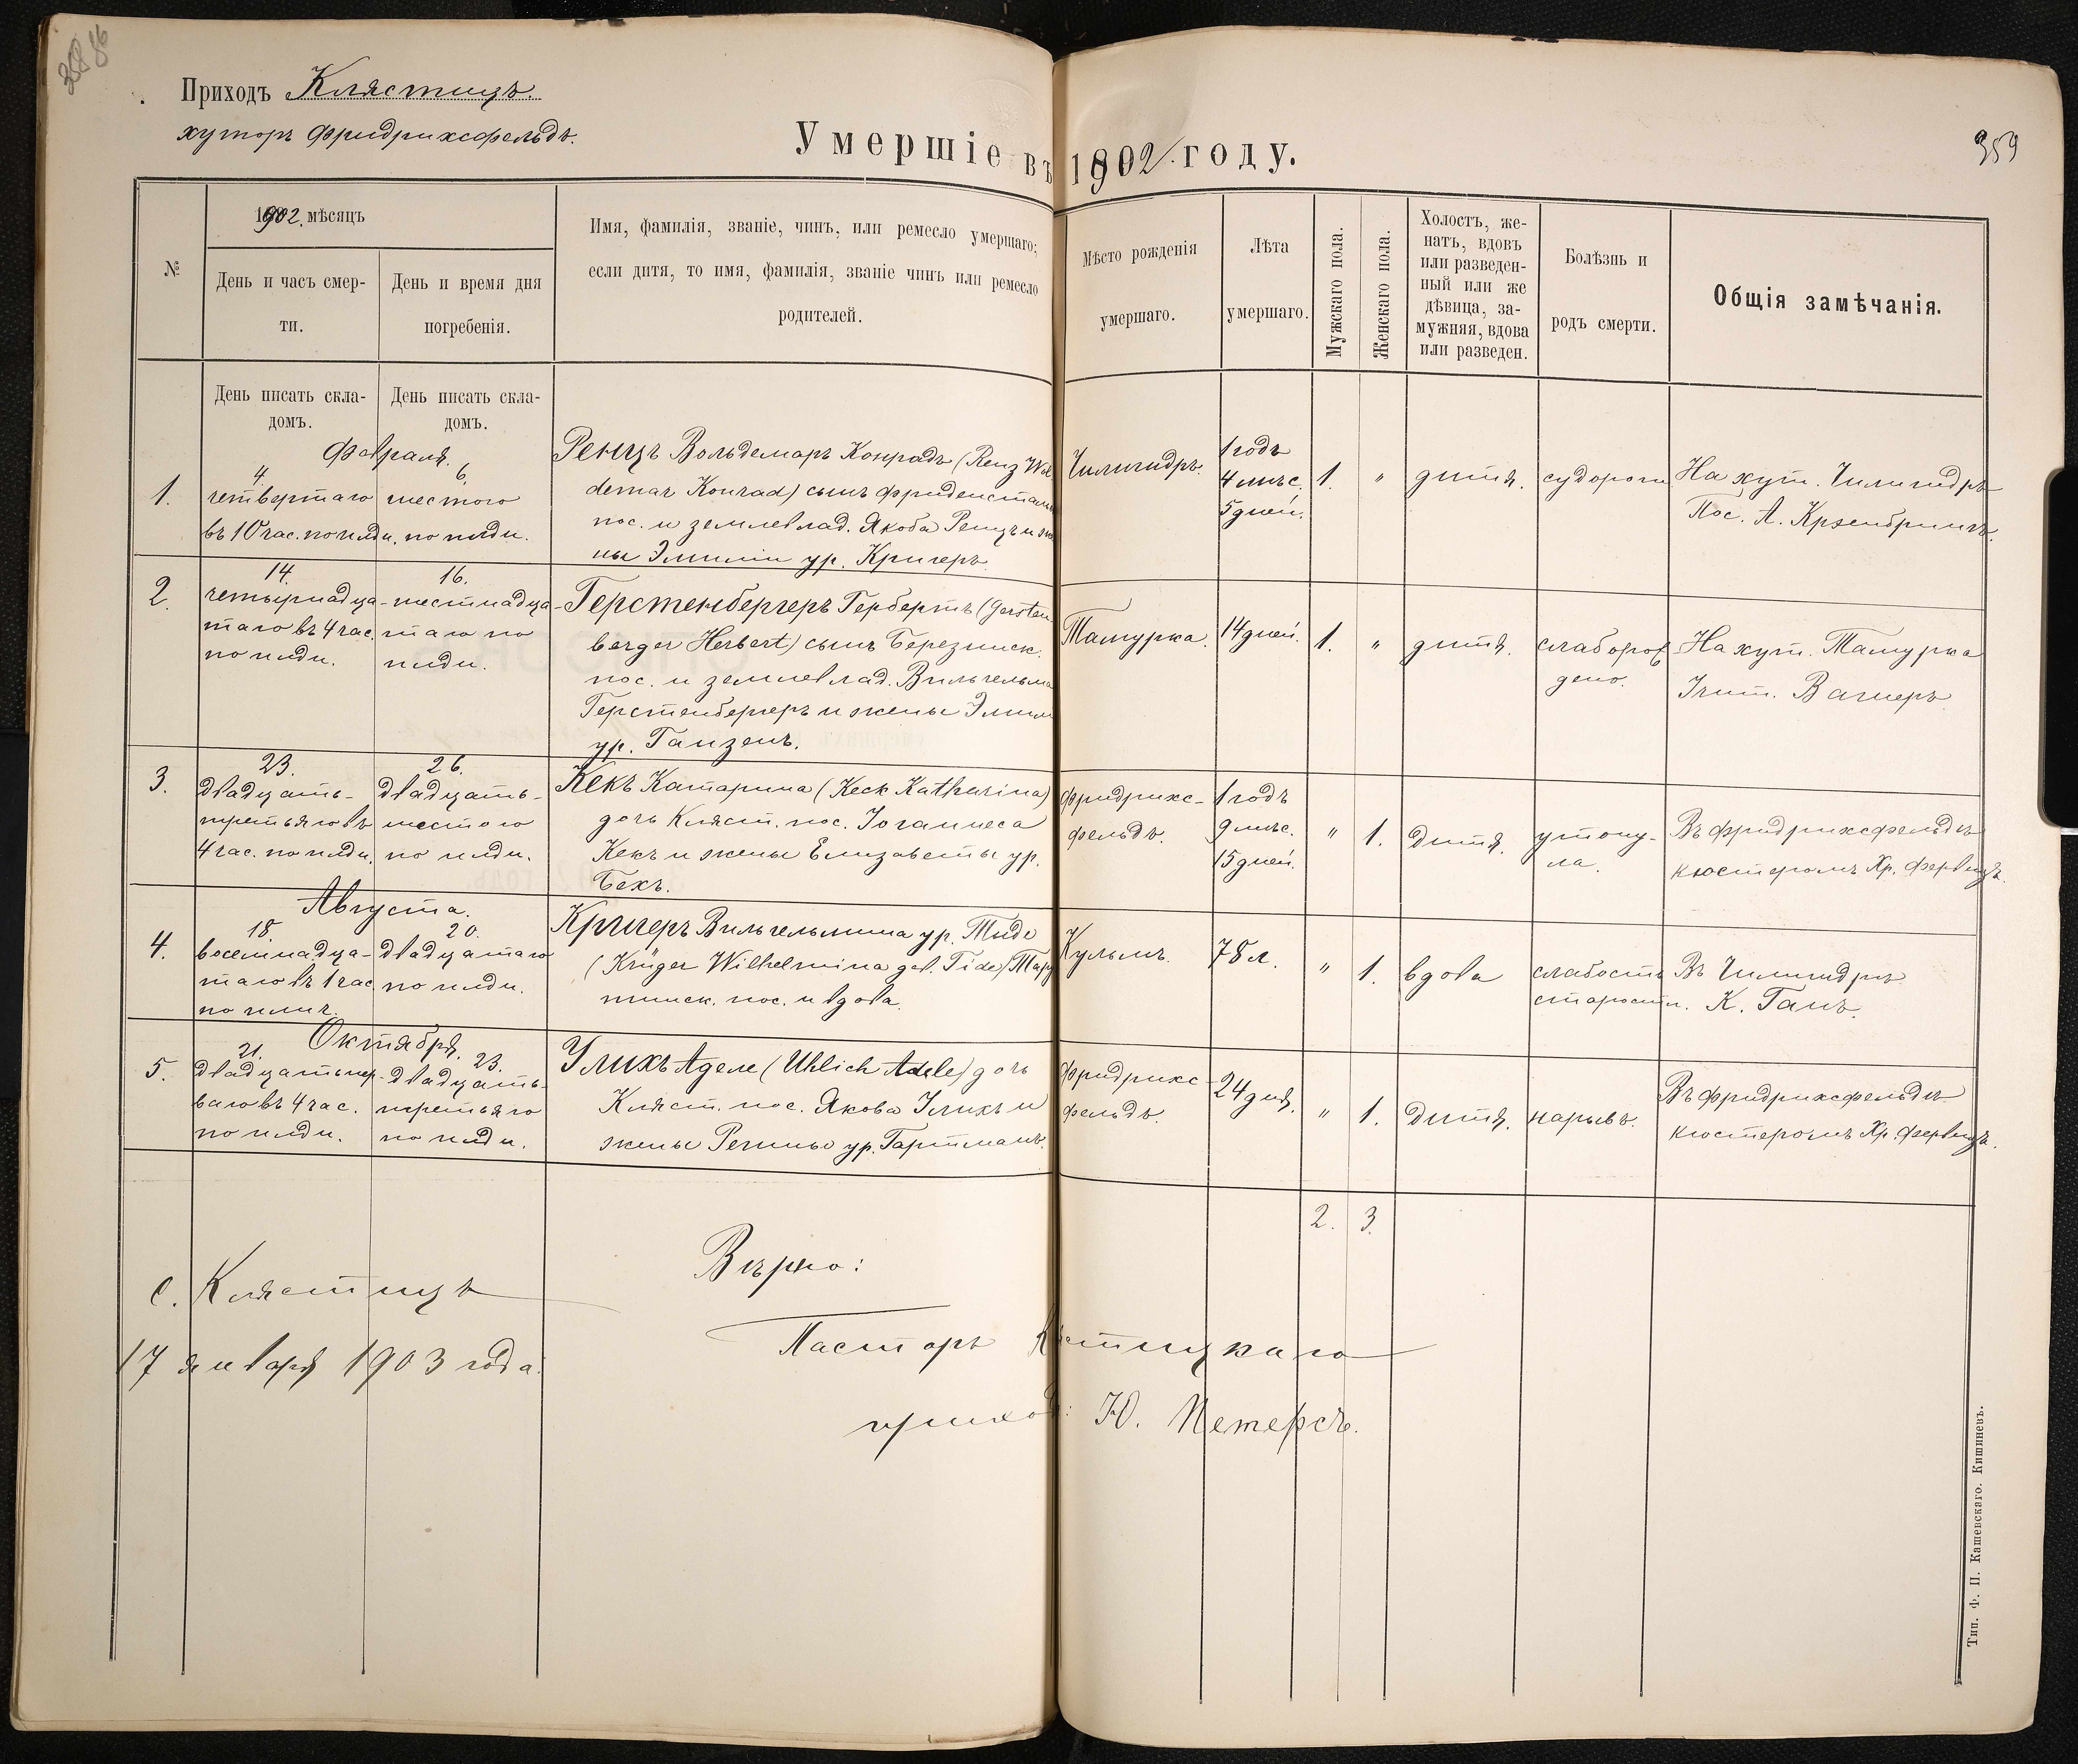 358 86
Приходъ Клястицъ.
хуторъ Фридрихсфельдъ.
Умершіе въ 1902 году.
359
№
1902. мѣсяцъ
День и часъ смер-
ти.
День и время дня
погребенія.
Имя, фамилія, званіе, чинъ, или ремесло умершаго;
если дитя, то имя, фамилія, званіе чинъ или ремесло
родителей.
Мѣсто рожденія
умершаго.
Лѣта
умершаго.
Мужскаго пола.
Женскаго пола.
Холостъ, же-
натъ, вдовъ
или разведен-
ный или же
дѣвица, за-
мужняя, вдова
или разведен.
Болѣзнь и
родъ смерти.
Общія замѣчанія.
День писать скла-
домъ.
День писать скла-
домъ.
Февраля.
1.
4.
четвертаго
въ 10 час. пополдн.
6.
шестого
по полдн.
Ренцъ Вольдемаръ Конрадъ (Renz Wol
demar Konrad) сынъ Фриденсталь
пос. и землевлад. Якоба Ренцъ и же
ны Эмиліи ур. Кригеръ.
Чилигидръ.
1 годъ
4 мѣс.
5 дней.
1.
"
дитя.
судороги
На хут. Чилигидръ
Пос. А. Крэенбринкъ.
2.
14.
четырнадца-
таго въ 4 час.
по полдн.
16.
шестнадца-
таго по
полдн.
Герстенбергеръ Гербертъ (Gersten
berger Herbert) сынъ Березинск.
пос. и землевлад. Вильгельма
Герстенбергеръ и жены Эмили
ур. Ганзенъ.
Тамурка.
14 дней.
1.
"
дитя.
слаборож
дено.
На хут. Тамурка
Учит. Вагнеръ
3.
23.
двадцать-
третьяго въ
4 час. по полдн.
26.
двадцать-
шестого
по полдн.
Кекъ Катарина (Keck Katharina)
дочь Кляст. пос. Іоганнеса
Кекъ и жены Елизаветы ур.
Бехъ.
Фридрихс-
фельдъ.
1 годъ
9 мѣс.
15 дней.
"
1.
Дитя.
утону-
ла.
Въ Фридрихсфельдѣ
кюстеромъ Хр. Фервицъ.
Августа.
4.
18.
восемнадца-
таго въ 1 час.
по полдн.
20.
двадцатаго
по полдн.
Кригеръ Вильгельмина ур. Тиде
(Krüger Wilhelmina geb. Tide) Тару
тинск. пос. и вдова.
Кульмъ.
78 л.
"
1.
вдова
слабость
старости.
Въ Чилигидръ
К. Ганъ.
Октября.
5.
21.
двадцатьпер-
ваго въ 4 час.
по полдн.
23.
двадцать-
третьяго
по полдн.
Улихъ Аделе (Uhlich Adele) дочь
Кляст. пос. Якова Улихъ и
жены Регины ур. Гартманъ.
Фридрихс-
фельдъ.
24 дня.
"
1.
Дитя.
нарывъ.
Въ Фридрихсфельдѣ
кюстеромъ Хр. Фервицъ.
2.
3.
Вѣрно:
с. Клястицъ
17 января 1903 года.
Пасторъ Клястицкаго
приход: Ю. Петерсъ.
Тип. Ф. П. Кашевскаго. Кишиневъ.